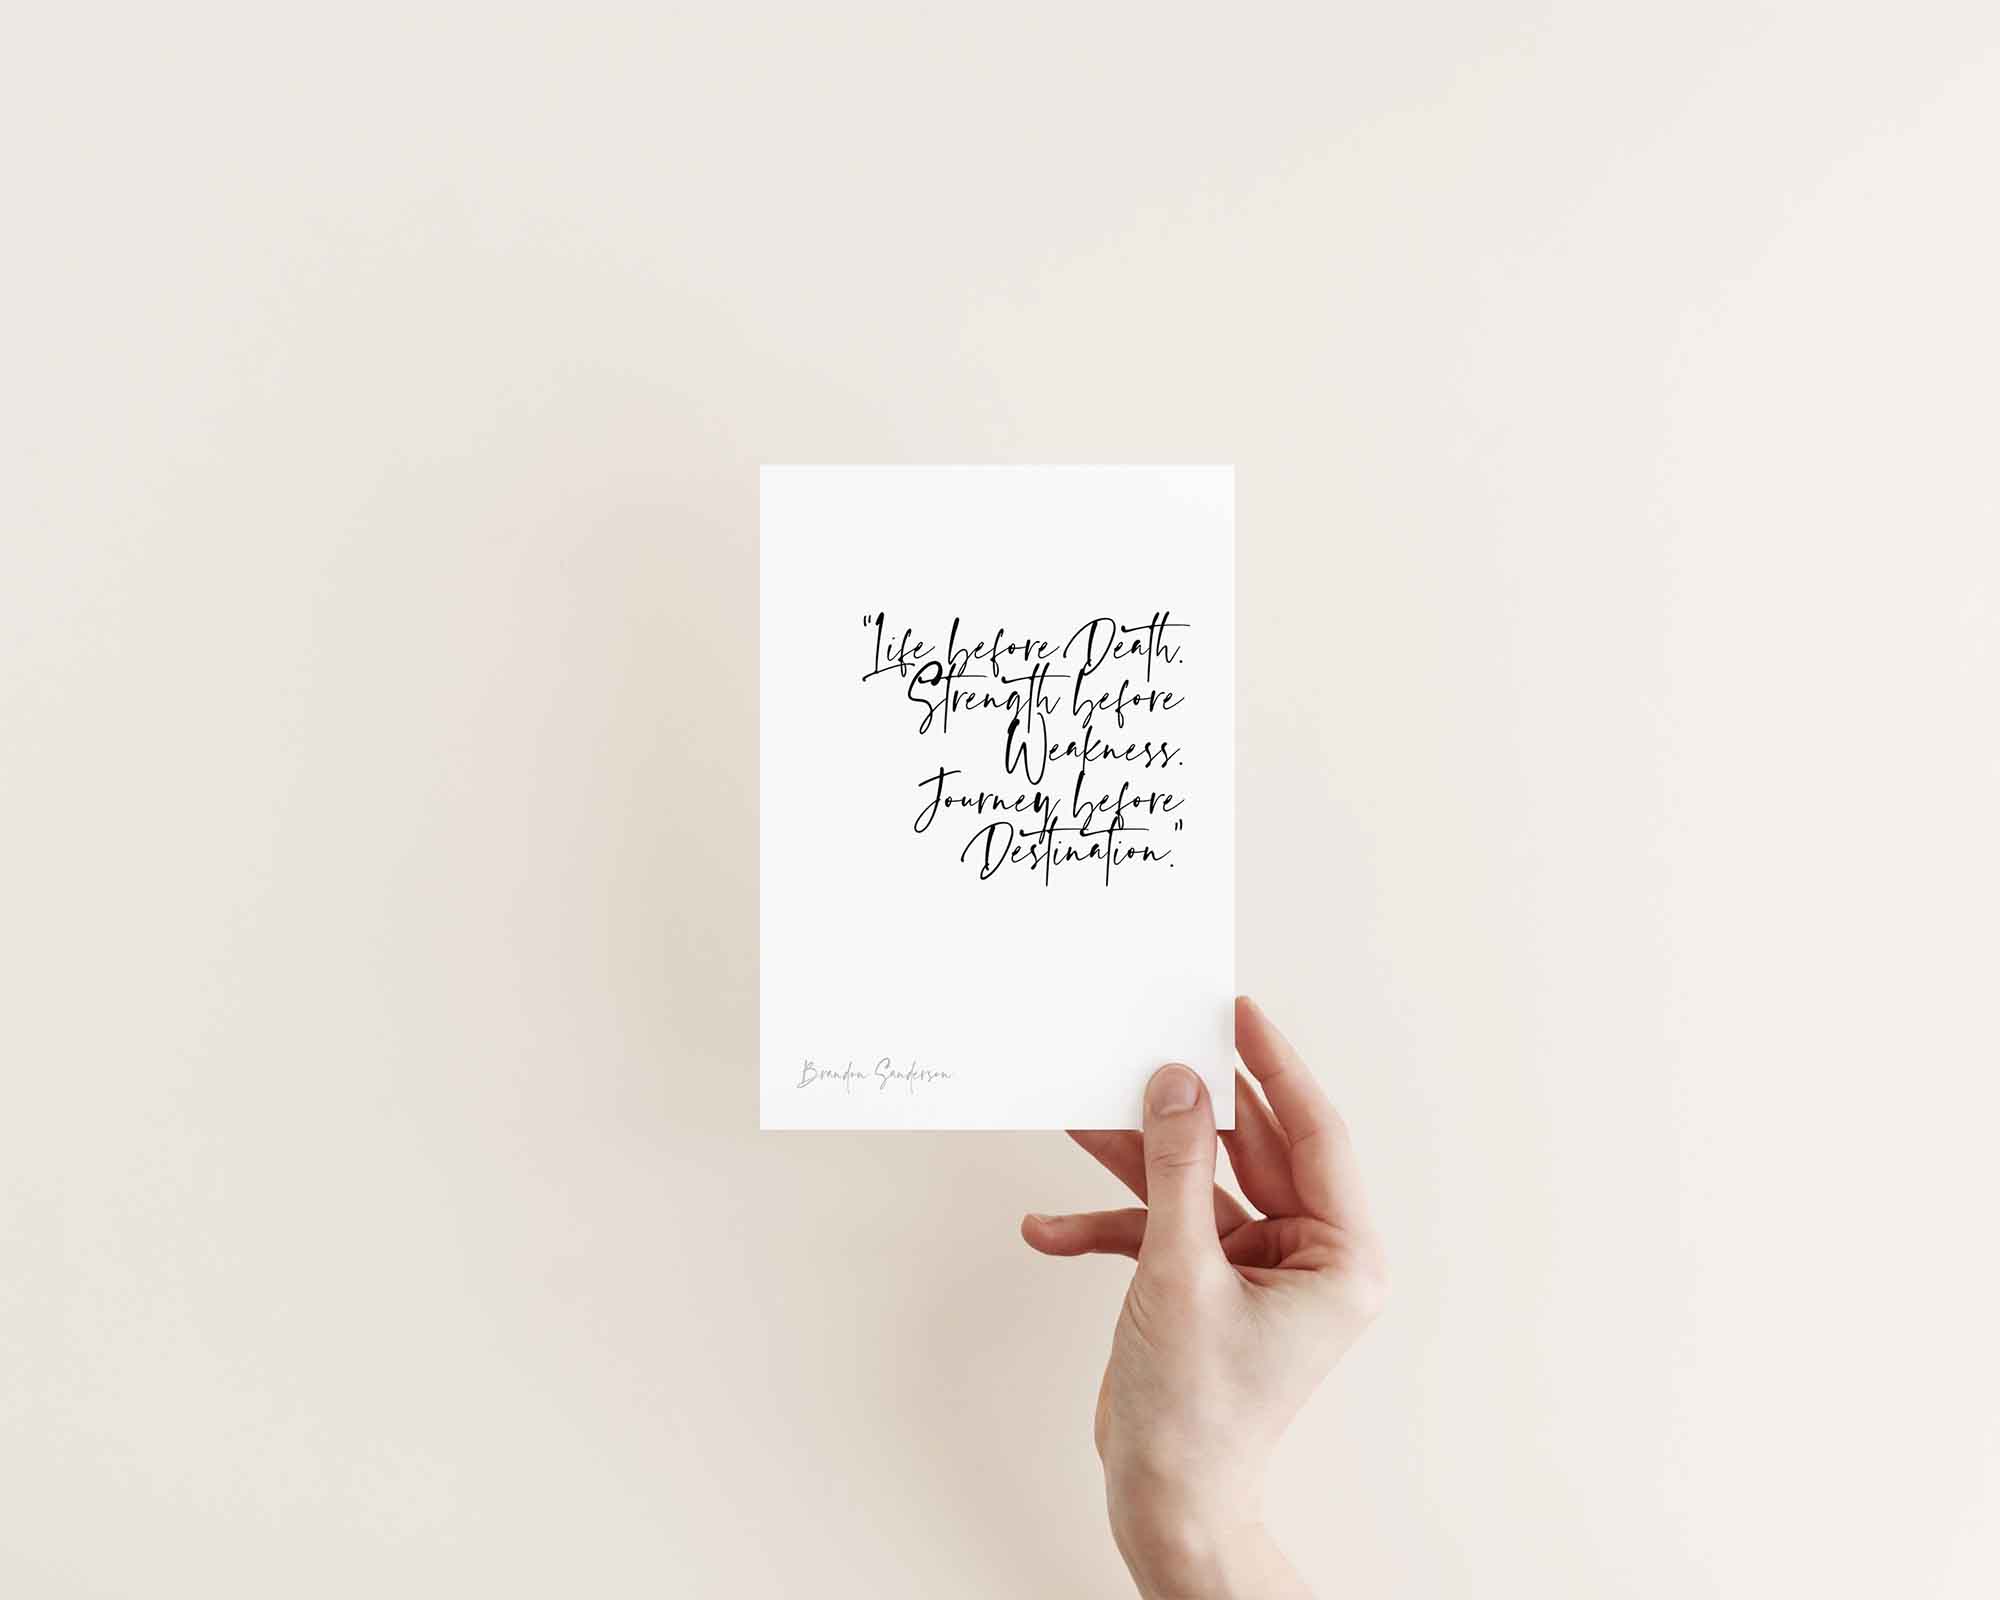 "Life before Death.
Strength before
Weakness.
Journey before
Destination."
Brandon Sanderson